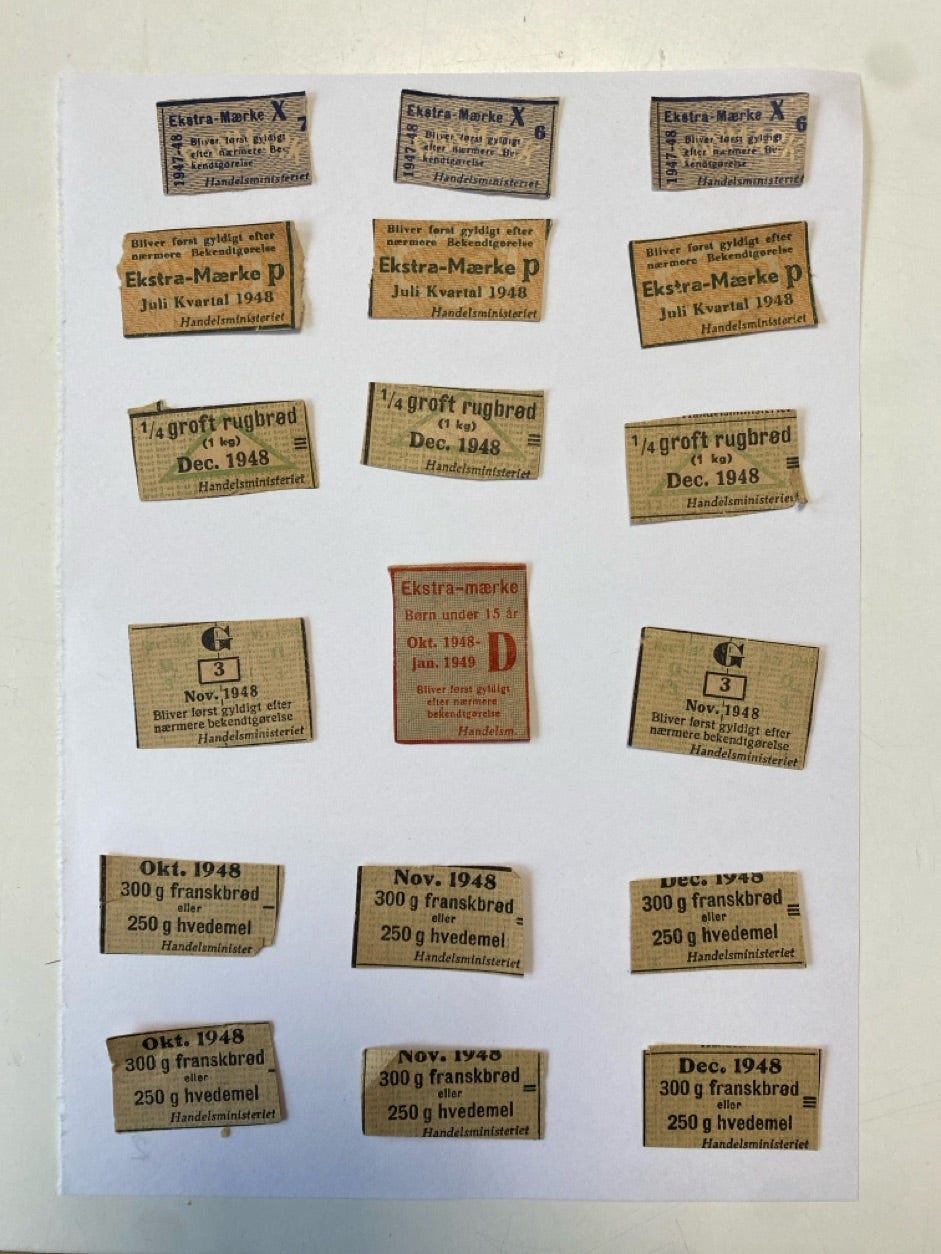 Ekstra-Mærke X 7
1947-48
Bliver først gyldigt
efter nærmere Be-
kendtgørelse
Handelsministeriet
Ekstra-Mærke X 6
1947-48
Bliver først gyldigt
efter nærmere Be-
kendtgørelse
Handelsministeriet
Ekstra-Mærke X 6
1947-48
Bliver først gyldigt
efter nærmere Be-
kendtgørelse
Handelsministeriet
Bliver først gyldigt efter
nærmere Bekendtgørelse
Ekstra-Mærke P
Juli Kvartal 1948
Handelsministeriet
Bliver først gyldigt efter
nærmere Bekendtgørelse
Ekstra-Mærke P
Juli Kvartal 1948
Handelsministeriet
Bliver først gyldigt efter
nærmere Bekendtgørelse
Ekstra-Mærke P
Juli Kvartal 1948
Handelsministeriet
1/4 groft rugbrød
(1 kg)
Dec. 1948
Handelsministeriet
1/4 groft rugbrød
(1 kg)
Dec. 1948
Handelsministeriet
Handelsministeriet
1/4 groft rugbrød
(1 kg)
Dec. 1948
Handelsministeriet
G
3
Nov. 1948
Bliver først gyldigt efter
nærmere bekendtgørelse
Handelsministeriet
Ekstra-mærke
Børn under 15 år
Okt. 1948-
Jan. 1949 D
Bliver først gyldigt
efter nærmere
bekendtgørelse
Handelsm.
G
3
Nov. 1948
Bliver først gyldigt efter
nærmere bekendtgørelse
Handelsministeriet
Okt. 1948
300 g franskbrød
eller
250 g hvedemel
Handelsminister
Nov. 1948
300 g franskbrød
eller
250 g hvedemel
Handelsministeriet
Dec. 1948
300 g franskbrød
eller
250 g hvedemel
Handelsministeriet
Okt. 1948
300 g franskbrød
eller
250 g hvedemel
Handelsministeriet
Nov. 1948
300 g franskbrød
eller
250 g hvedemel
Handelsministeriet
Dec. 1948
300 g franskbrød
eller
250 g hvedemel
Handelsministeriet